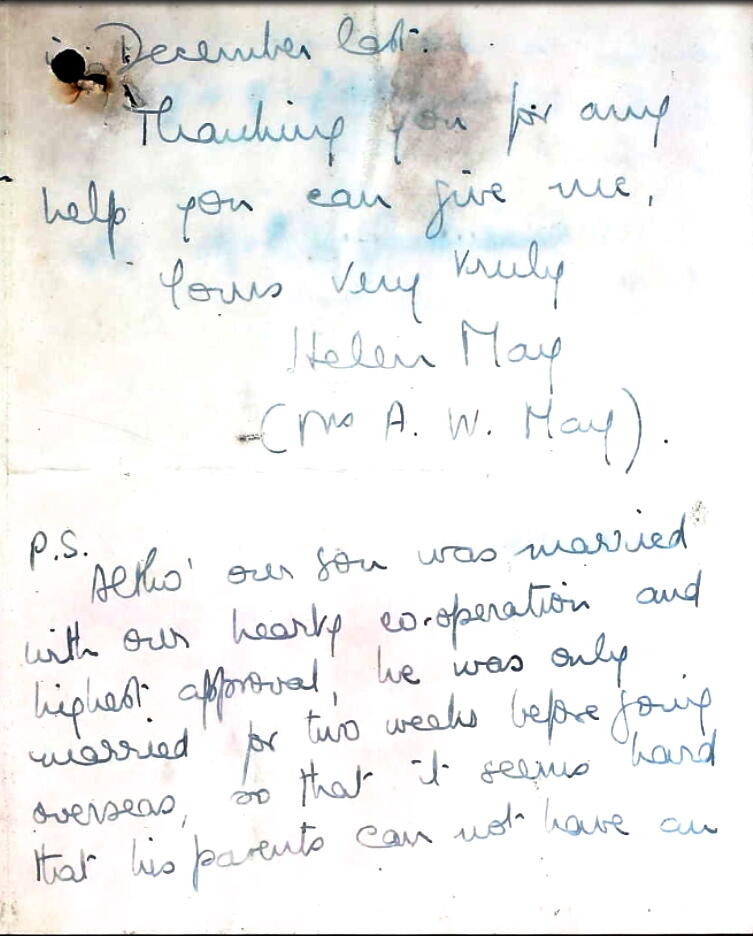 in December last.
Thanking you for any
help you can give me,
Yours very truly
Helen May
(Mrs A. W. May).
P.S.
Altho' our son was married
with our hearty co-operation and
highest approval, he was only
married for two weeks before going
overseas, so that it seems hard
that his parents can not have an